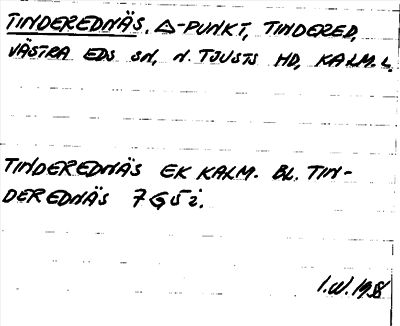 TINDEREDNÄS, △-PUNKT, TINDERED,
VÄSTRA EDS SN, N. TJUSTS HD, KALM. L.
TINDEREDNÄS EK KALM. BL. TIN-
DEREDNÄS 7G5i.
I.W. 1958